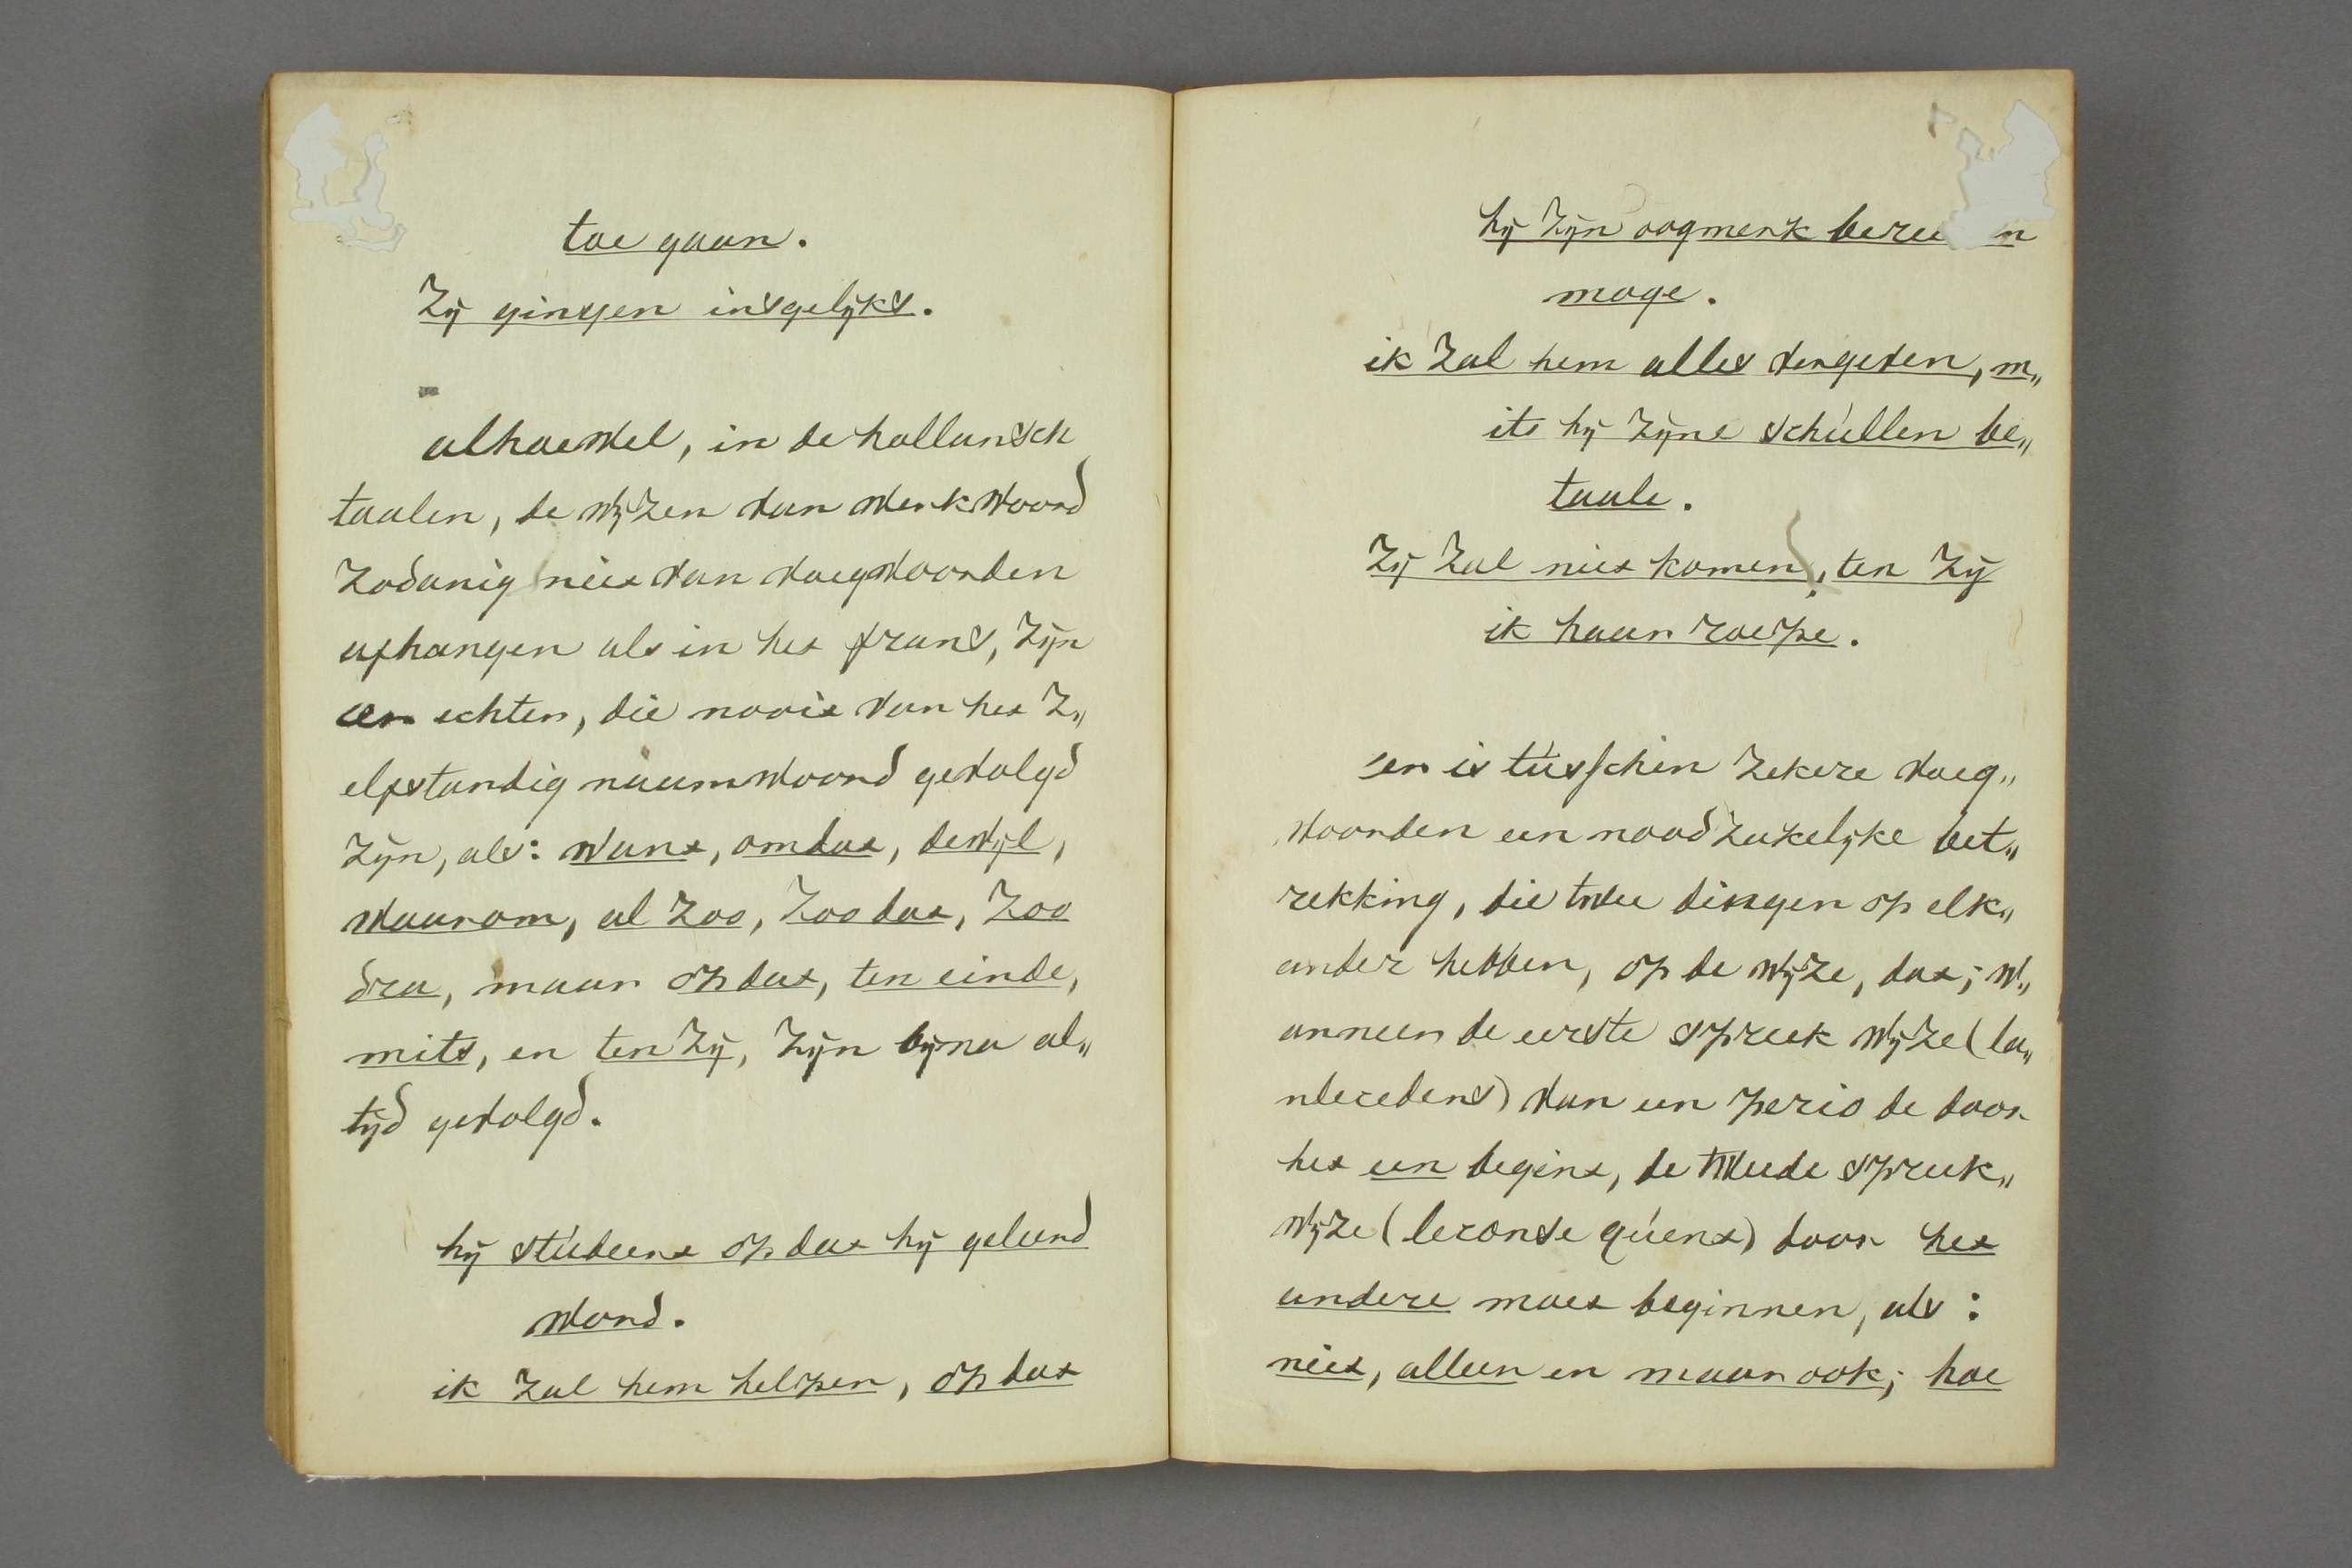 toe gaan.
Zÿ gingen insgelÿks.
alhoewel, in de hollansch
taalen, de wÿzen van werkwoord
zodanig niet van voegwoorden
afhangen als in het frans, zÿn
er echter, die nooit van het z„
elfstandig naamwoord gevolgd
zÿn, als: want, omdat, dewÿl,
waarom, al zoo, zoo dat, zoo
dra, maar op dat, ten einde,
mits, en ten zÿ, zÿn bÿna al„
tÿd gevolgd.
hÿ studeert op dat hÿ geleerd
word.
ik zal hem helpen, op dat
hÿ zÿn oogmerk beree n
moge.
ik zal hem alles vergeven, m„
its hÿ zÿne schullen be„
taale.
Zÿ zal niet komen, ten zÿ
ik haar roepe.
er is tusschin zekere voeg„
woorden een noodzakelÿke bet„
rekking, die twee dingen op elk„
ander hebben, op de wÿze, dat; w„
anneer de eerste spreek wÿze (la„
ntecedens) van een periode door
het een begint, de tweede spreek„
wÿze (leconse quent) door het
andere moet beginnen, als:
niet, alleen en maar ook; hoe